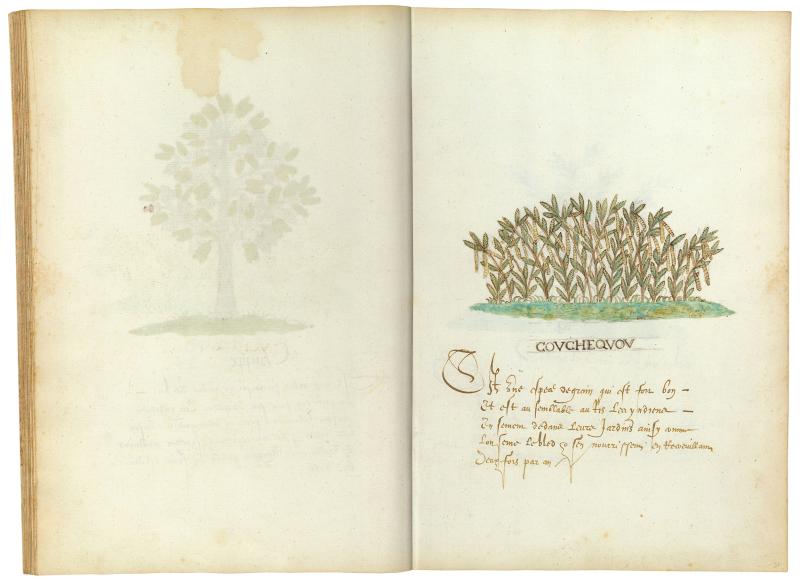 COVCHEQVOV
Est Une espece degrain qui est fort bon
Et est au semblable au Ris Les yndiens
En sement dedans Leurs Jardins ainsy comme
Lon seme Le bled & sen nourrissent en Recueillant
deux fois par an